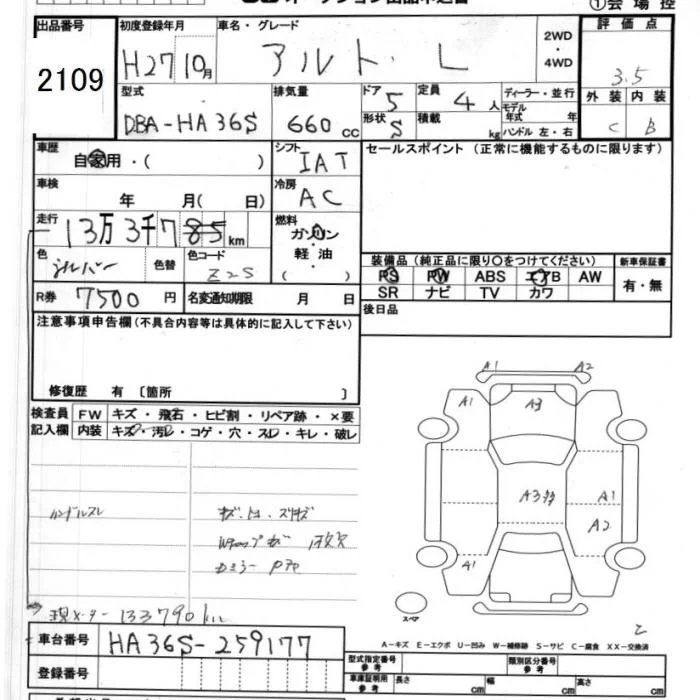 ①会場控
出品番号 初度登録年月 車名・グレード 評価点
2109 H27 10月 アルト L 2WD・4WD 3.5
型式 排気量 ドア 定員 ディーラー・並行 外装 内装
DBA-HA36S 660cc 5 4人 モデル年式 年 C B
形状 S 積載 kg ハンドル 左・右
車歴 シフト セールスポイント (正常に機能するものに限ります)
自家用・( ) IAT
車検 冷房
年 月(日) AC
走行 燃料
13万3千785km ガソリン
軽油
( )
色 色替 色コード
シルバー Z2S
装備品(純正品に限り〇をつけてください) 新車保証書
PS PW ABS エアB AW 有・無
SR ナビ TV カワ
R券 7500円 名変通知期限 月 日
後日品
注意事項申告欄(不具合内容等は具体的に記入して下さい)
修復歴 有 〔箇所 〕
検査員記入欄 FW キズ・飛石・ヒビ割・リペア跡・×要
内装 キズ・汚レ・コゲ・穴・スレ・キレ・破レ
A1 A2
A1 A3
A3 A1
A2
A1
ハンドルスレ
スペア
現メーター133790km
2
A-キズ E-エクボ U-凹み W-補修跡 S-サビ C-腐食 XX-交換済
車台番号 HA36S-259177
登録番号
型式指定番号 参考 類別区分番号 参考
車庫証明用 参考 長さ cm 幅 cm 高さ cm